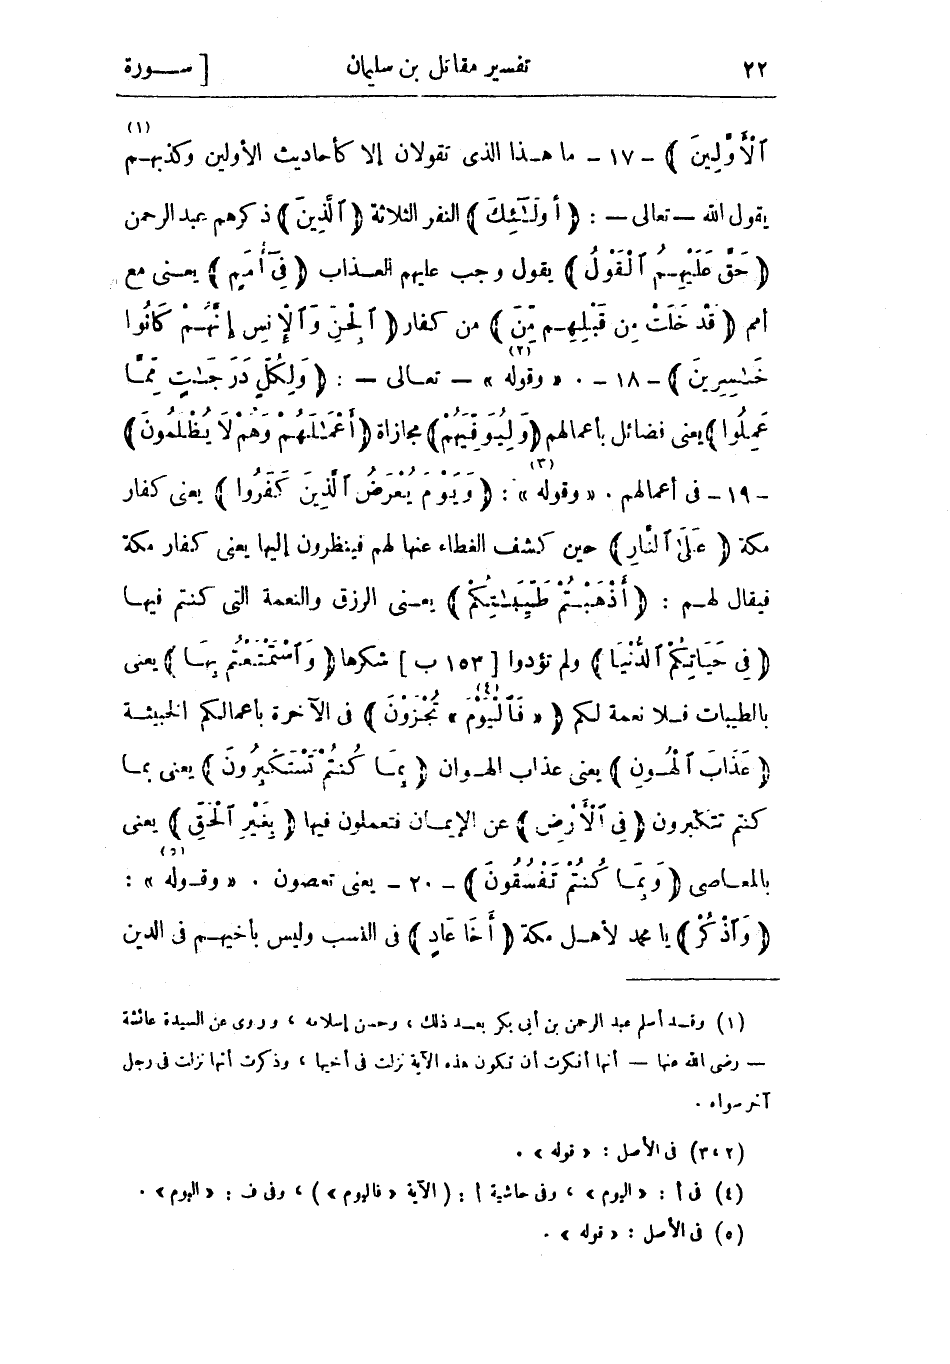 ٢٢ تفسير مقاتل بن سليمان [ ســـورة
ٱلْأَوَّلِينَ ﴾ - ١٧ - ما هـذا الذى تقولان إلا كأحاديث الأولين وكذبهـم (١)
يقول الله — تعالى — : ﴿ أُولَـٰٓئِكَ ﴾ النفر الثلاثة ﴿ ٱلَّذِينَ ﴾ ذكرهم عبد الرحمن
﴿ حَقَّ عَلَيْهِـمُ ٱلْقَوْلُ ﴾ يقول وجب عليهم العـذاب ﴿ فِىٓ أُمَمٍ ﴾ يعـنى مع
أمم ﴿ قَدْ خَلَتْ مِن قَبْلِهِـم مِّنَ ﴾ من كفار ﴿ ٱلْجِنِّ وَٱلْإِنسِ إِنَّهُـمْ كَانُوا
خَـٰسِرِينَ ﴾ - ١٨ - . « وقوله » (٢) — تعـالى — : ﴿ وَلِكُلٍّ دَرَجَـٰتٍ مِّمَّـا
عَمِلُوا ﴾ يعنى فضائل بأعمالهم ﴿ وَلِيُوَفِّيَهُمْ ﴾ مجازاة ﴿ أَعْمَـٰلَهُـمْ وَهُمْ لَا يُظْلَمُونَ ﴾
- ١٩ - فى أعمالهم . « وقوله » (٣) : ﴿ وَيَوْمَ يُعْرَضُ ٱلَّذِينَ كَفَرُوا ﴾ يعنى كفار
مكة ﴿ عَلَى ٱلنَّارِ ﴾ حين كشف الغطاء عنها لهم فينظرون إليها يعنى كفار مكة
فيقال لهـم : ﴿ أَذْهَبْـتُمْ طَيِّبَـٰتِكُمْ ﴾ يعـنى الرزق والنعمة التى كنتم فيهـا
﴿ فِى حَيَاتِكُمُ ٱلدُّنْيَا ﴾ ولم تؤدوا [ ١٥٣ ب ] شكرها ﴿ وَٱسْتَمْتَعْتُم بِهَـا ﴾ يعنى
بالطيبات فـلا نعمة لكم ﴿ « فَٱلْيَوْمَ » (٤) تُجْزَوْنَ ﴾ فى الآخرة بأعمالكم الخبيثـة
﴿ عَذَابَ ٱلْهُـونِ ﴾ يعنى عذاب الهـوان ﴿ بِمَـا كُنتُمْ تَسْتَكْبِرُونَ ﴾ يعنى بمـا
كنتم تتكبرون ﴿ فِى ٱلْأَرْضِ ﴾ عن الإيمـان فتعملون فيها ﴿ بِغَيْرِ ٱلْحَقِّ ﴾ يعنى
بالمعـاصى ﴿ وَبِمَـا كُنتُمْ تَفْسُقُونَ ﴾ - ٢٠ - يعنى تعصون . « وقـوله » (٥) :
﴿ وَٱذْكُرْ ﴾ يا محمد لأهـل مكة ﴿ أَخَا عَادٍ ﴾ فى النسب وليس بأخيهـم فى الدين
(١) وقـد أسلم عبد الرحمن بن أبى بكر بعـد ذلك ، وحسن إسلامه ، وروى عن السيدة عائشة
— رضى الله عنها — أنها أنكرت أن تكون هذه الآية نزلت فى أخيها ، وذكرت أنها نزلت فى رجل
آخر سواه .
(٢ ، ٣) فى الأصل : « قوله » .
(٤) فى أ : « اليوم » ، وفى حاشية أ : ( الآية « فاليوم » ) ، وفى ف : « اليوم » .
(٥) فى الأصل : « قوله » .